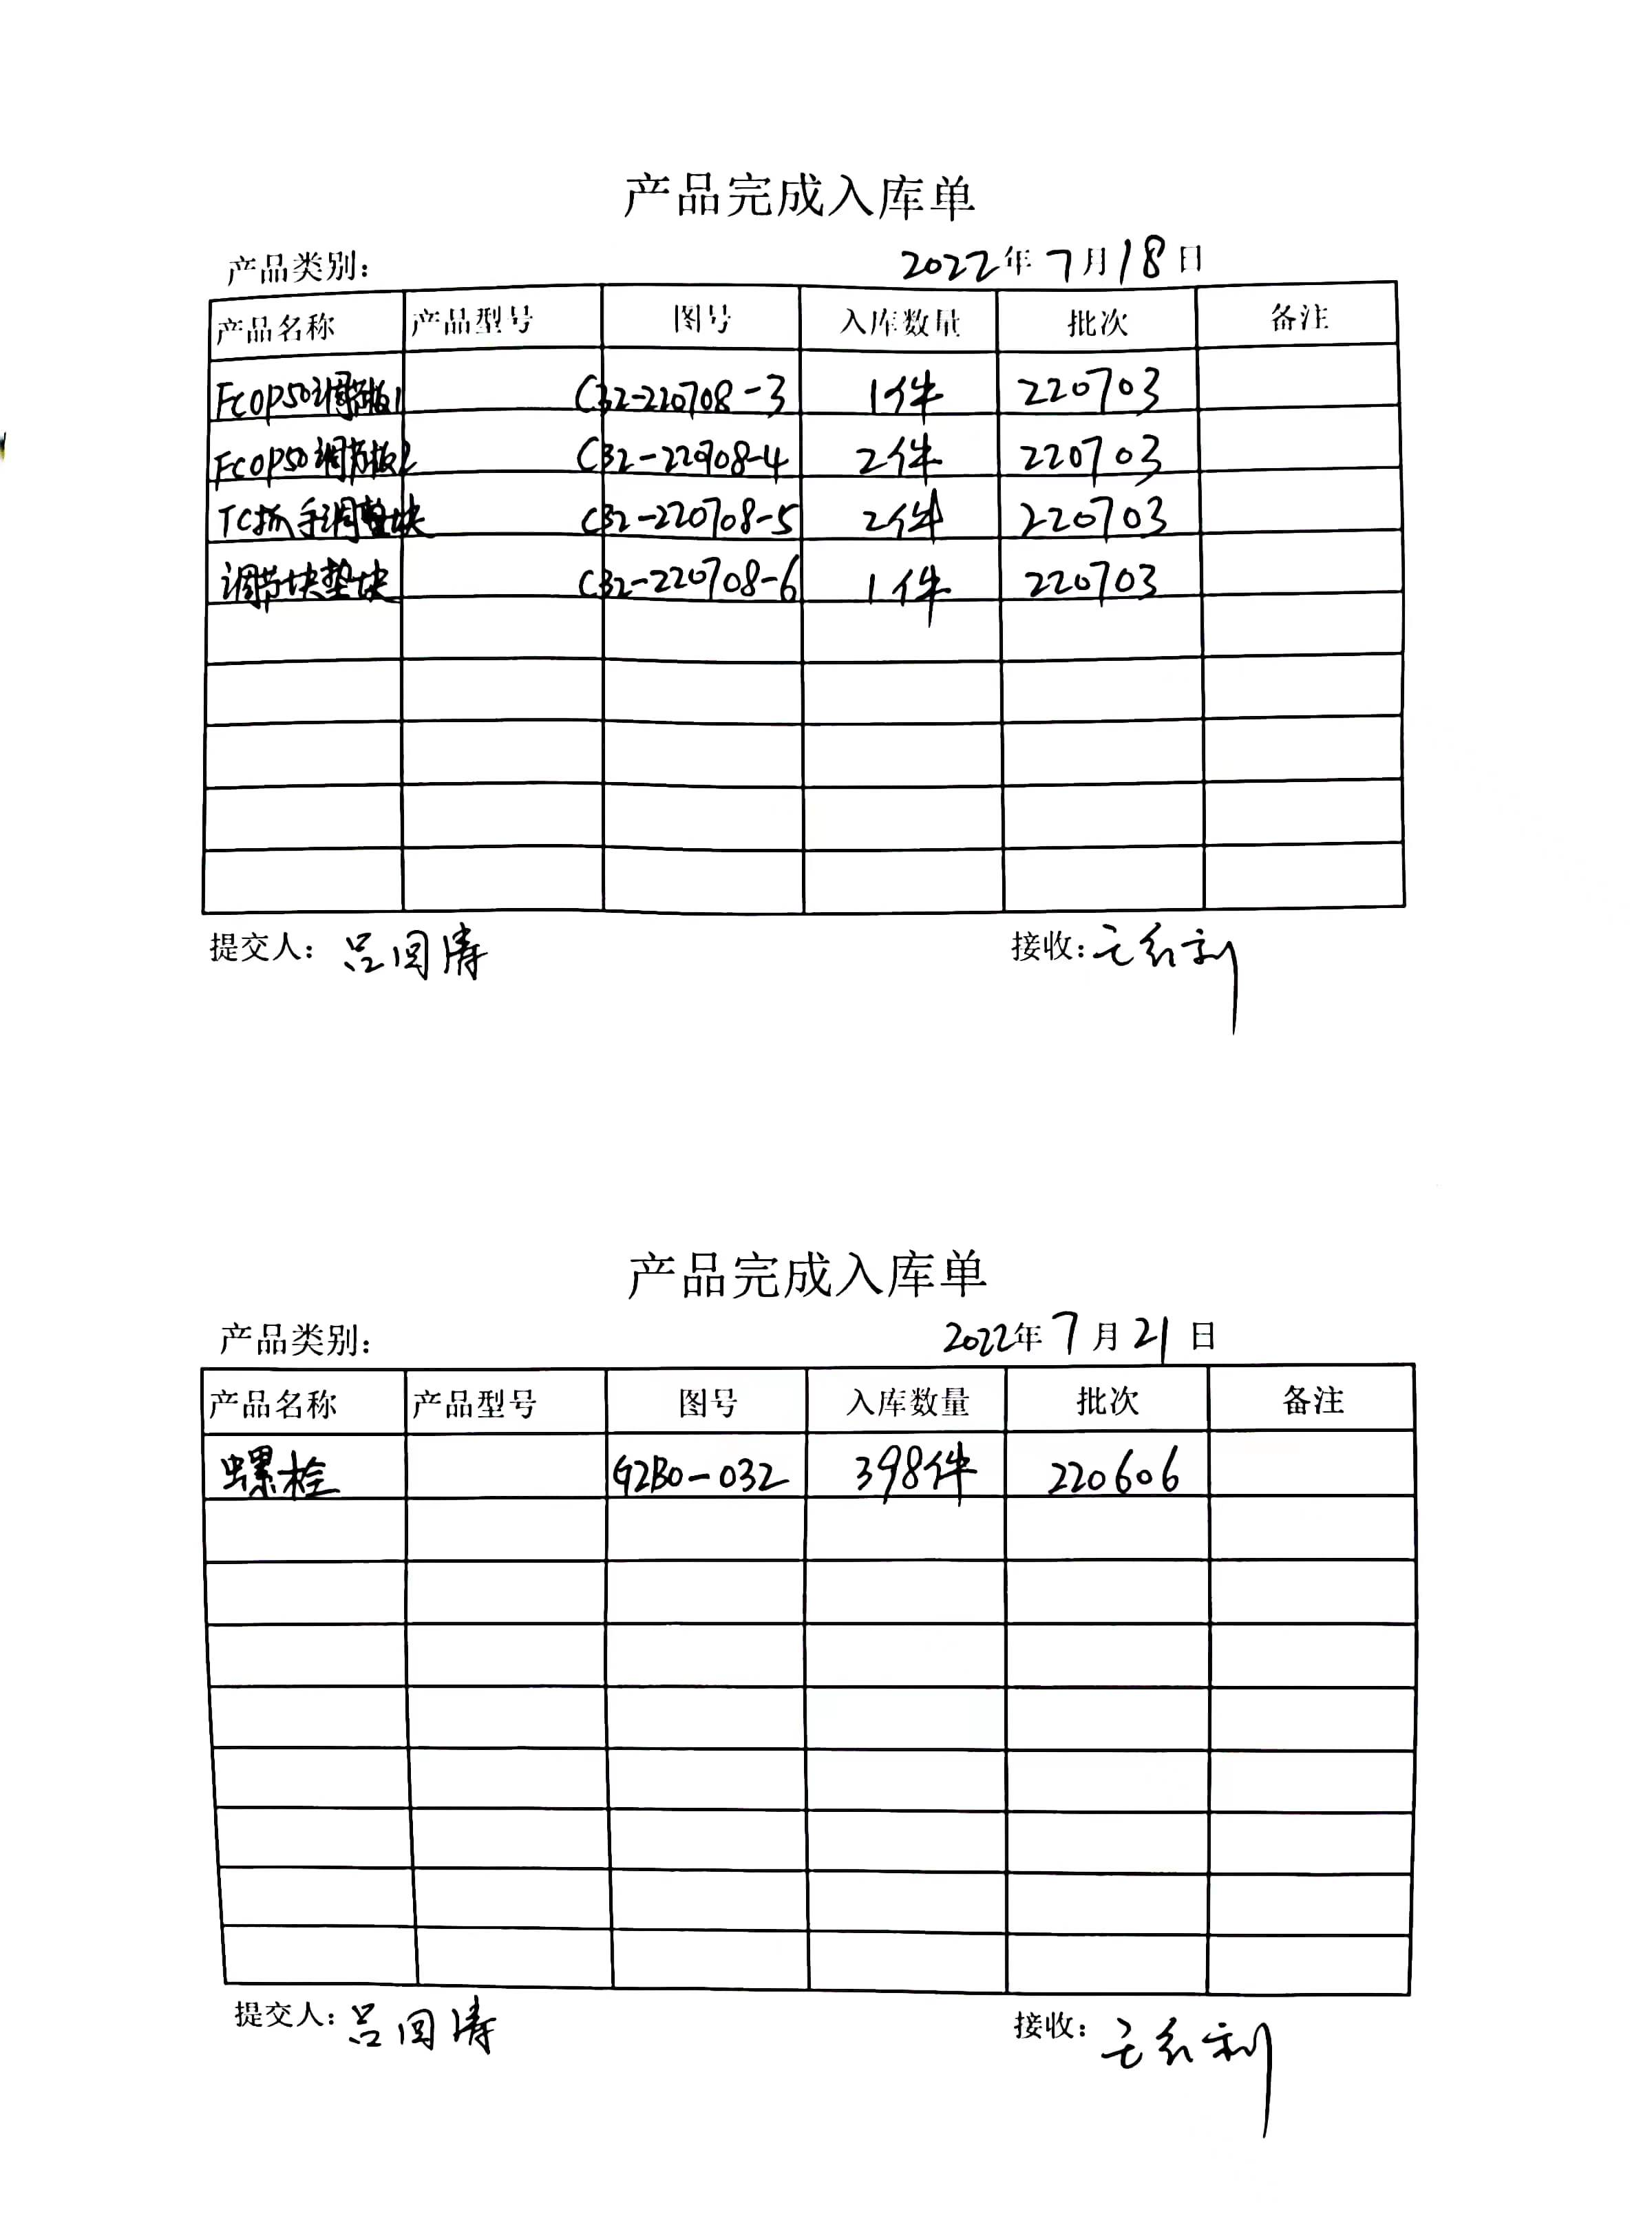 产品完成入库单
产品类别: 2022年7月18日
产品名称 产品型号 图号 入库数量 批次 备注
FCOP50调节板1 C32-220708-3 1件 220703
FCOP50调节板2 C32-220708-4 2件 220703
TC抓手调整块 C32-220708-5 2件 220703
调节块垫块 C32-220708-6 1件 220703
提交人: 吕国涛 接收: 王红利
产品完成入库单
产品类别: 2022年7月21日
产品名称 产品型号 图号 入库数量 批次 备注
螺栓 G2B0-032 398件 220606
提交人: 吕国涛 接收: 王红利